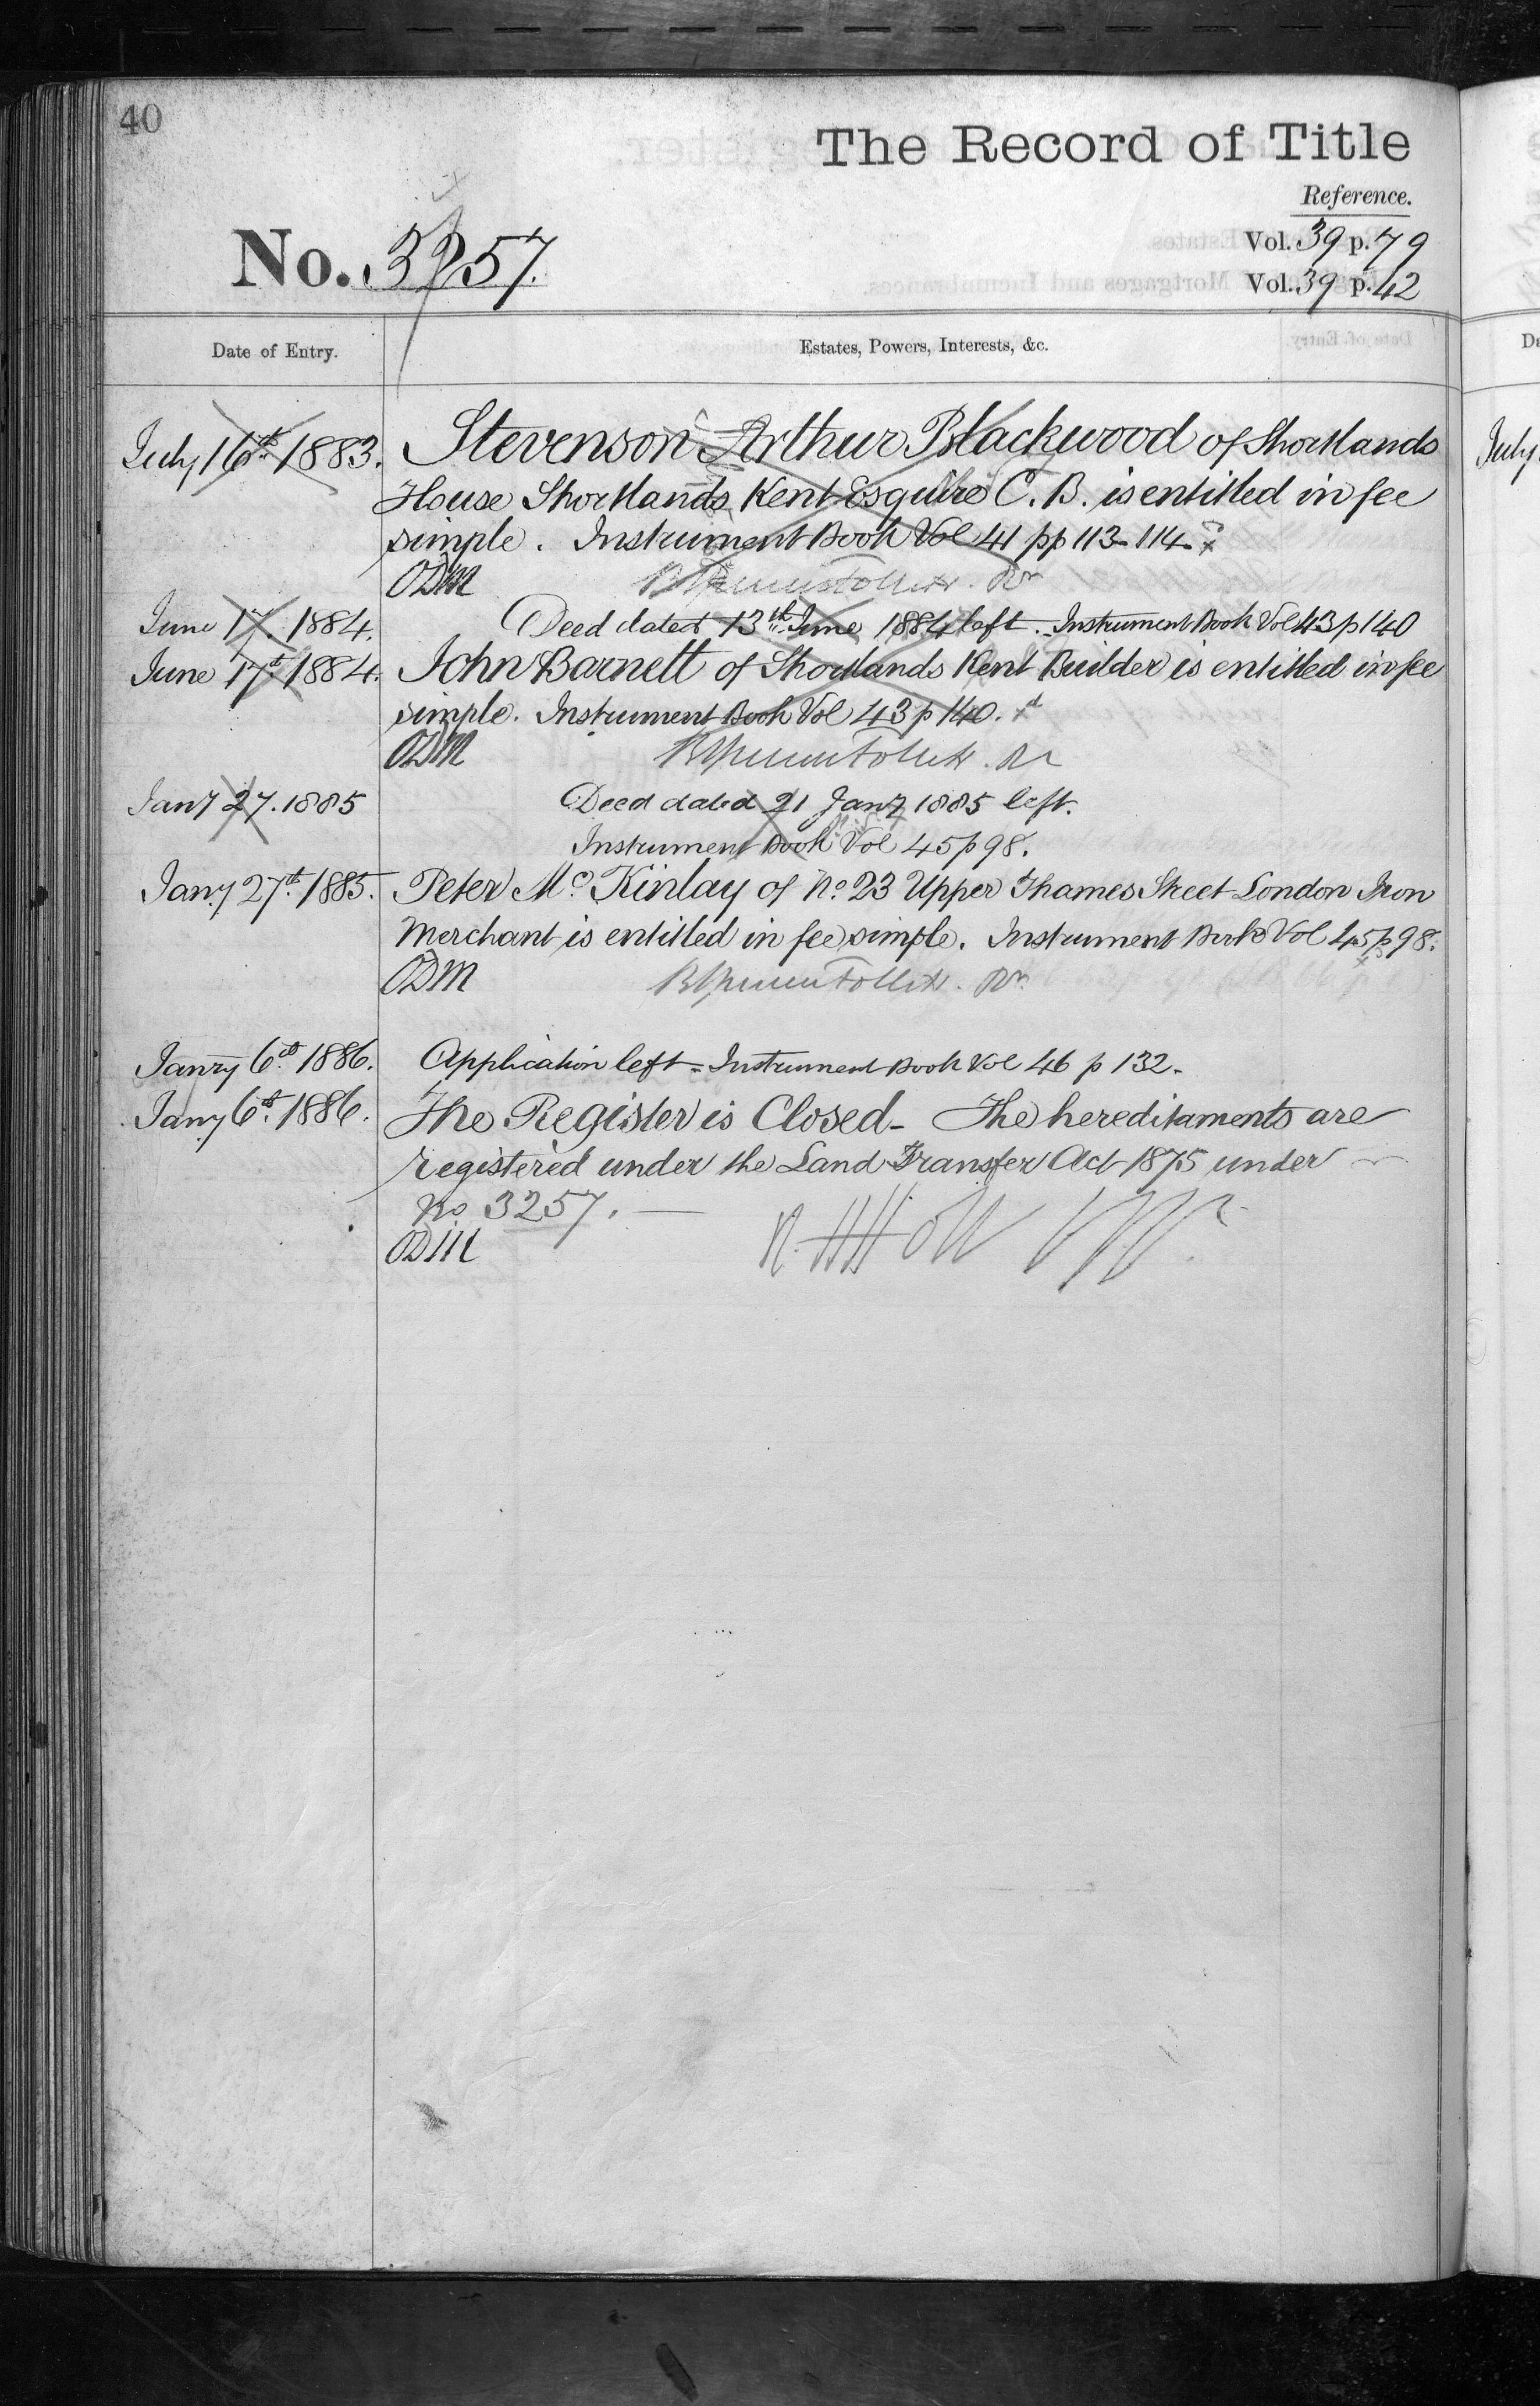 40
The Record of Title
Reference.
No. 3257.
Vol. 39 p. 79
Vol. 39 p. 42
Date of Entry.
Estates, Powers, Interests, &c.
July 16th 1883. Stevenson Arthur Blackwood of Shortlands
House Shortlands Kent Esquire C. B. is entitled in fee
simple. Instrument Book Vol 41 pp 113-114.
ODM
June 17. 1884. Deed dated 13th June 1884 left. Instrument Book Vol 43 p 140
June 17th 1884. John Barnett of Shortlands Kent Builder is entitled in fee
simple. Instrument Book Vol 43 p 140.
ODM
Jany 27. 1885 Deed dated 21 Jany 1885 left.
Instrument Book Vol 45 p 98.
Jany 27th 1885. Peter McKinlay of No. 23 Upper Thames Street London Iron
Merchant is entitled in fee simple. Instrument Book Vol 45 p 98.
ODM
Janry 6th 1886. Application left - Instrument Book Vol 46 p 132.
Jany 6th 1886. The Register is Closed - The hereditaments are
registered under the Land Transfer Act 1875 under
No 3257.
ODM
July